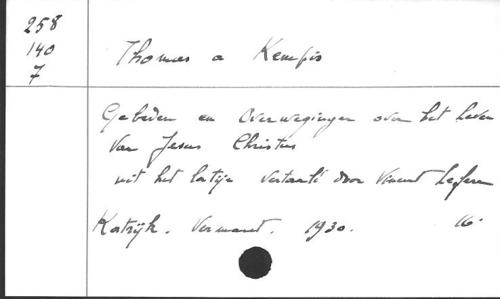 258
140
7
Thomas a Kempis
Gebeden en Overwegingen over het Leven
van Jesus Christus
uit het latijn vertaald door Vincent
Kortrijk. Vermaut. 1930. 16°